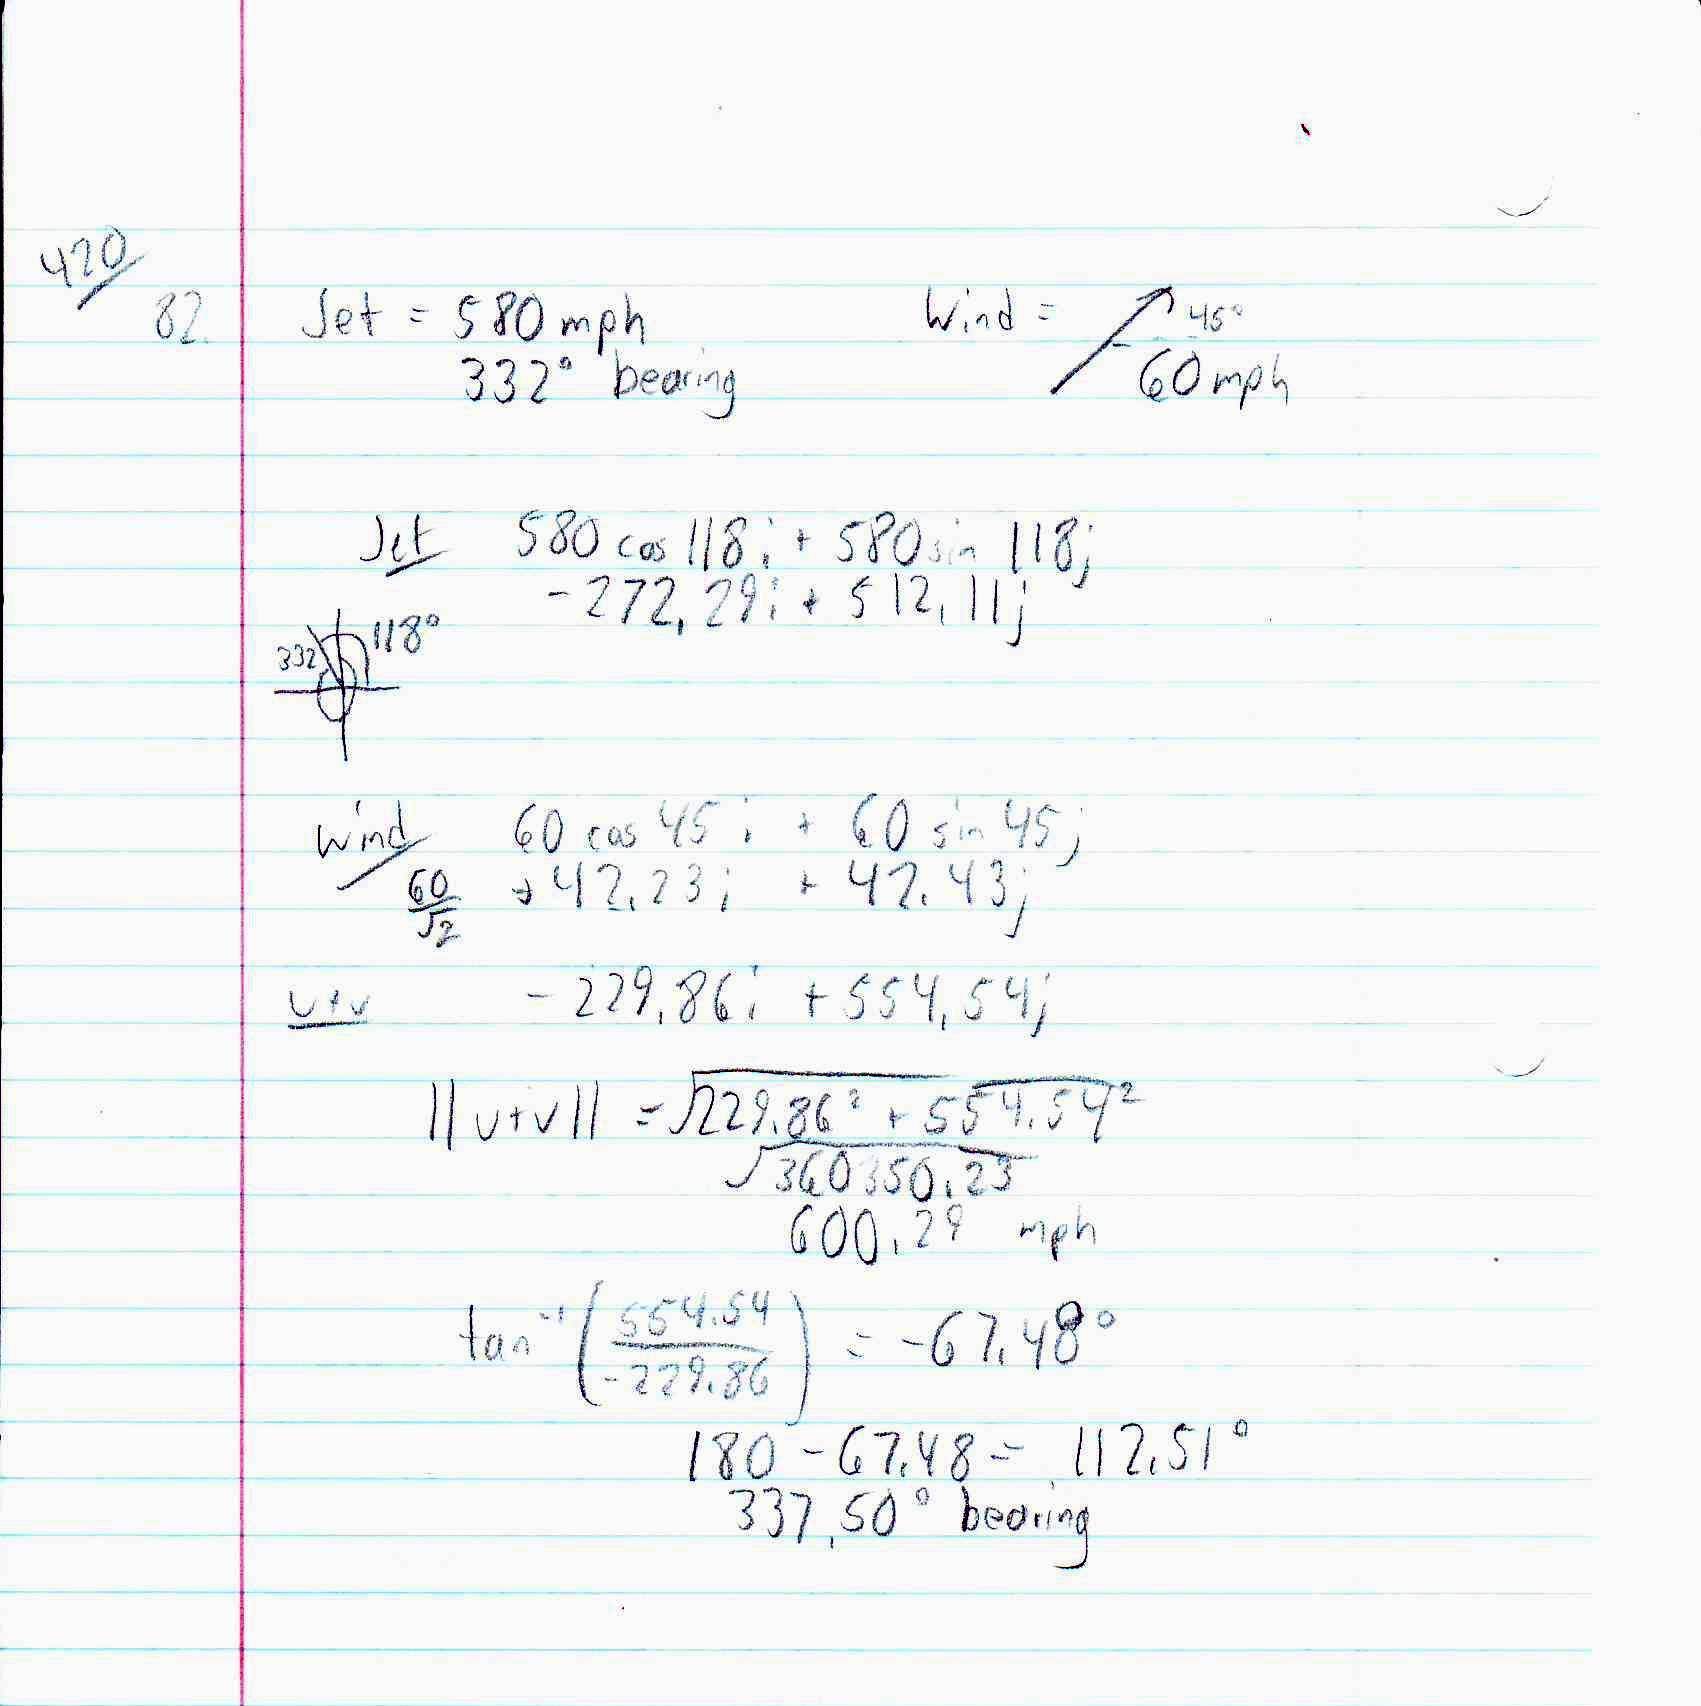 420
82. Jet = 580 mph Wind = 45°
332° bearing 60 mph
Jet 580 cos 118i + 580 sin 118j
-272.29i + 512.11j
332 118°
Wind 60 cos 45i + 60 sin 45j
60/√2 +42.23i + 42.43j
u+v -229.86i + 554.54j
||u+v|| = √229.86² + 554.54²
√360350.23
600.29 mph
tan⁻¹(554.54/-229.86) = -67.48°
180 - 67.48 = 112.51°
337.50° bearing